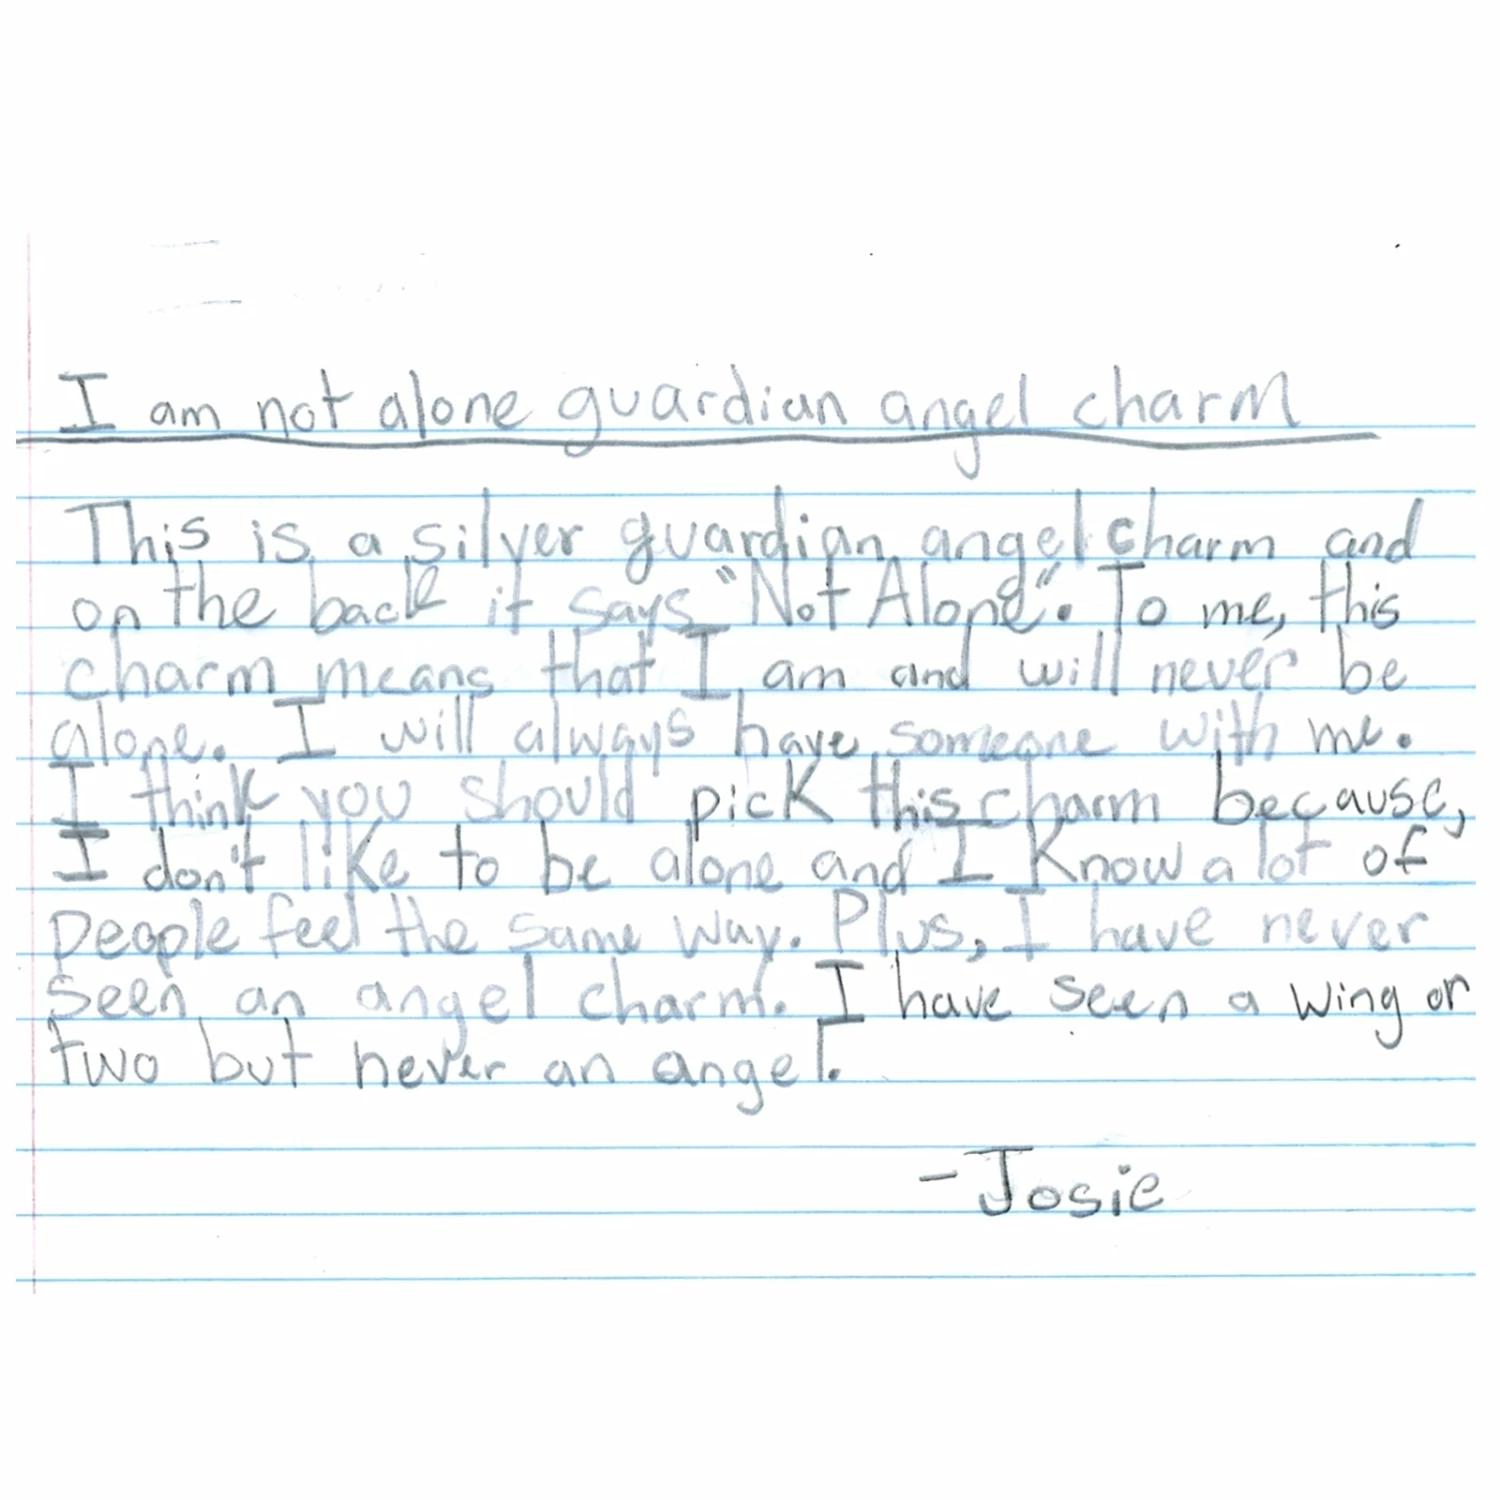 I am not alone guardian angel charm
This is a silver guardian angel charm and
on the back it says "Not Alone". To me, this
charm means that I am and will never be
alone. I will always have someone with me.
I think you should pick this charm because,
I don't like to be alone and I know a lot of
people feel the same way. Plus, I have never
seen an angel charm. I have seen a wing or
two but never an angel.
-Josie